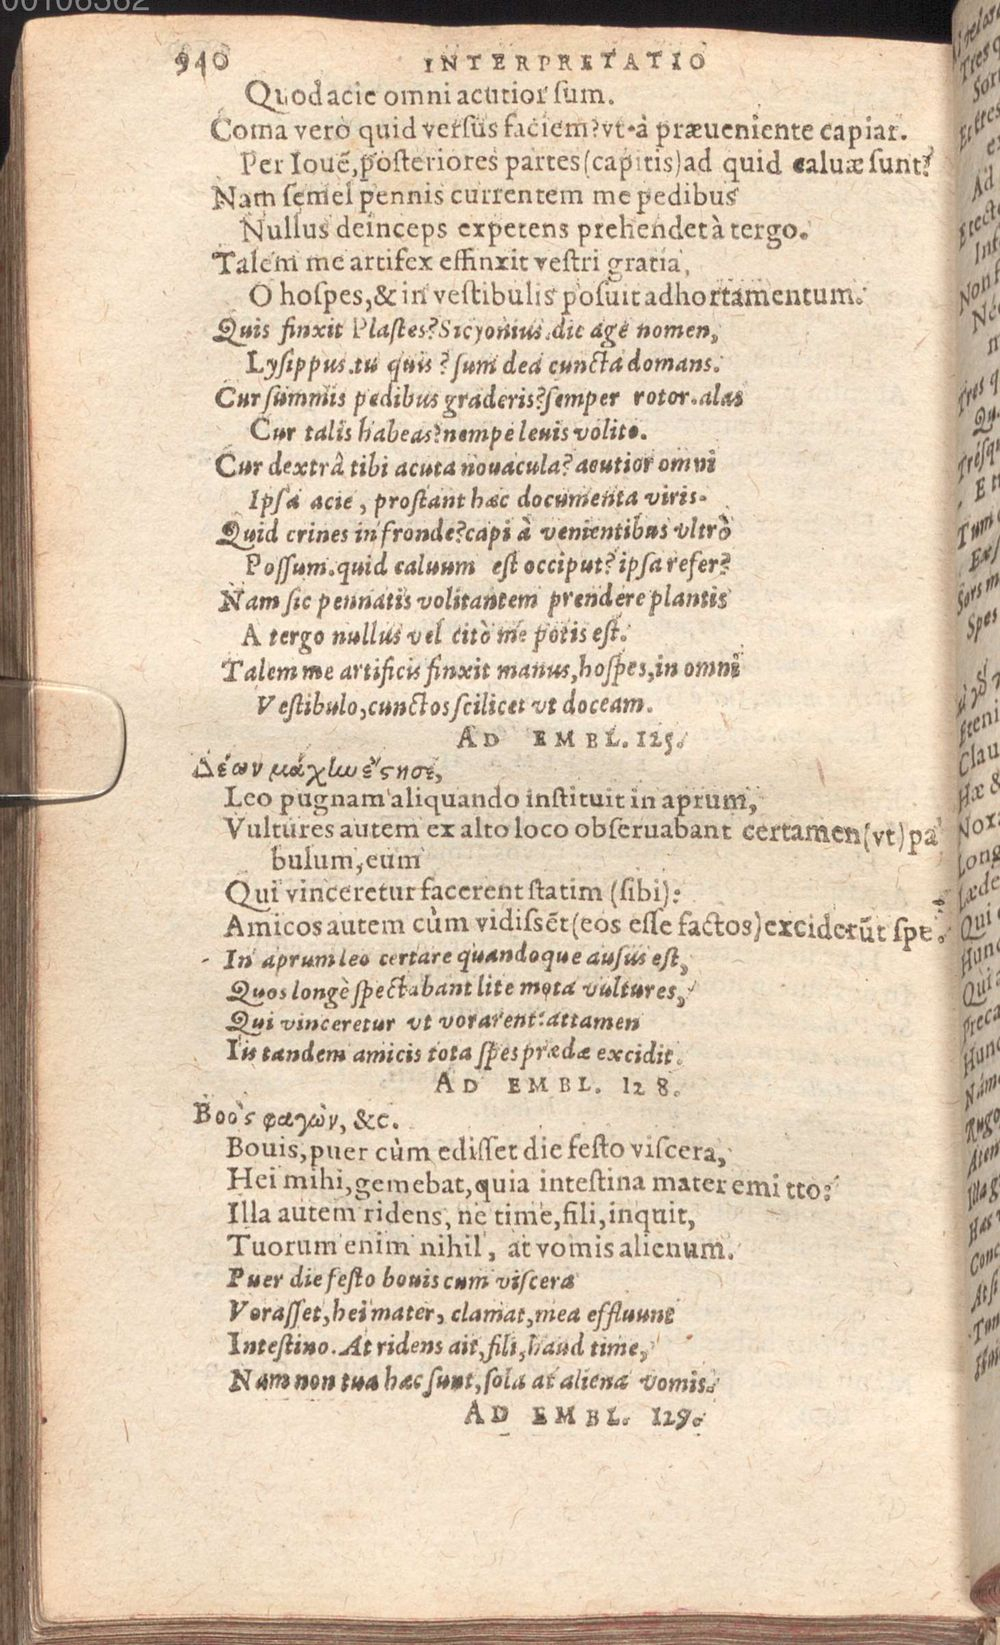 00106362
940 INTERPRETATIO
Quod acie omni acutior sum.
Coma verò quid versus faciem? vt à præueniente capiar.
Per Iouẽ, posteriores partes (capitis) ad quid caluæ sunt?
Nam semel pennis currentem me pedibus
Nullus deinceps expetens prehendet à tergo.
Talem me artifex effinxit vestri gratia,
O hospes, & in vestibulis posuit adhortamentum.
Quis finxit Plastes? Sicyonius. dic age nomen,
Lysippus. tu quis? sum dea cuncta domans.
Cur summis pedibus graderis? semper rotor. alas
Cur talis habeas? nempe leuis volito.
Cur dextrâ tibi acuta nouacula? acutior omni
Ipsa acie, prostant hæc documenta viris.
Quid crines in fronde? capi à venientibus vltrò
Possum. quid caluum est occiput? ipsa refer?
Nam sic pennatis volitantem prendere plantis
A tergo nullus vel citò me potis est.
Talem me artificis finxit manus, hospes, in omni
Vestibulo, cunctos scilicet vt doceam.
AD EMBL. 125.
Λέων μάχίω ἔϛησε,
Leo pugnam aliquando instituit in aprum,
Vultures autem ex alto loco obseruabant certamen (vt) pa
bulum, eum
Qui vinceretur facerent statim (sibi):
Amicos autem cùm vidissẽt (eos esse factos) exciderũt spe.
In aprum leo certare quandoque ausus est,
Quos longè spectabant lite mota vultures,
Qui vinceretur vt vorarent: attamen
Iis tandem amicis tota spes prædæ excidit.
AD EMBL. 128.
Βοὸς φαγὼν, &c.
Bouis, puer cùm edisset die festo viscera,
Hei mihi, gemebat, quia intestina mater emitto?
Illa autem ridens, ne time, fili, inquit,
Tuorum enim nihil, at vomis alienum.
Puer die festo bouis cum viscera
Vorasset, hei mater, clamat, mea effluunt
Intestino. At ridens ait, fili, haud time,
Nam non tua hæc sunt, sola at aliena vomis.
AD EMBL. 129.